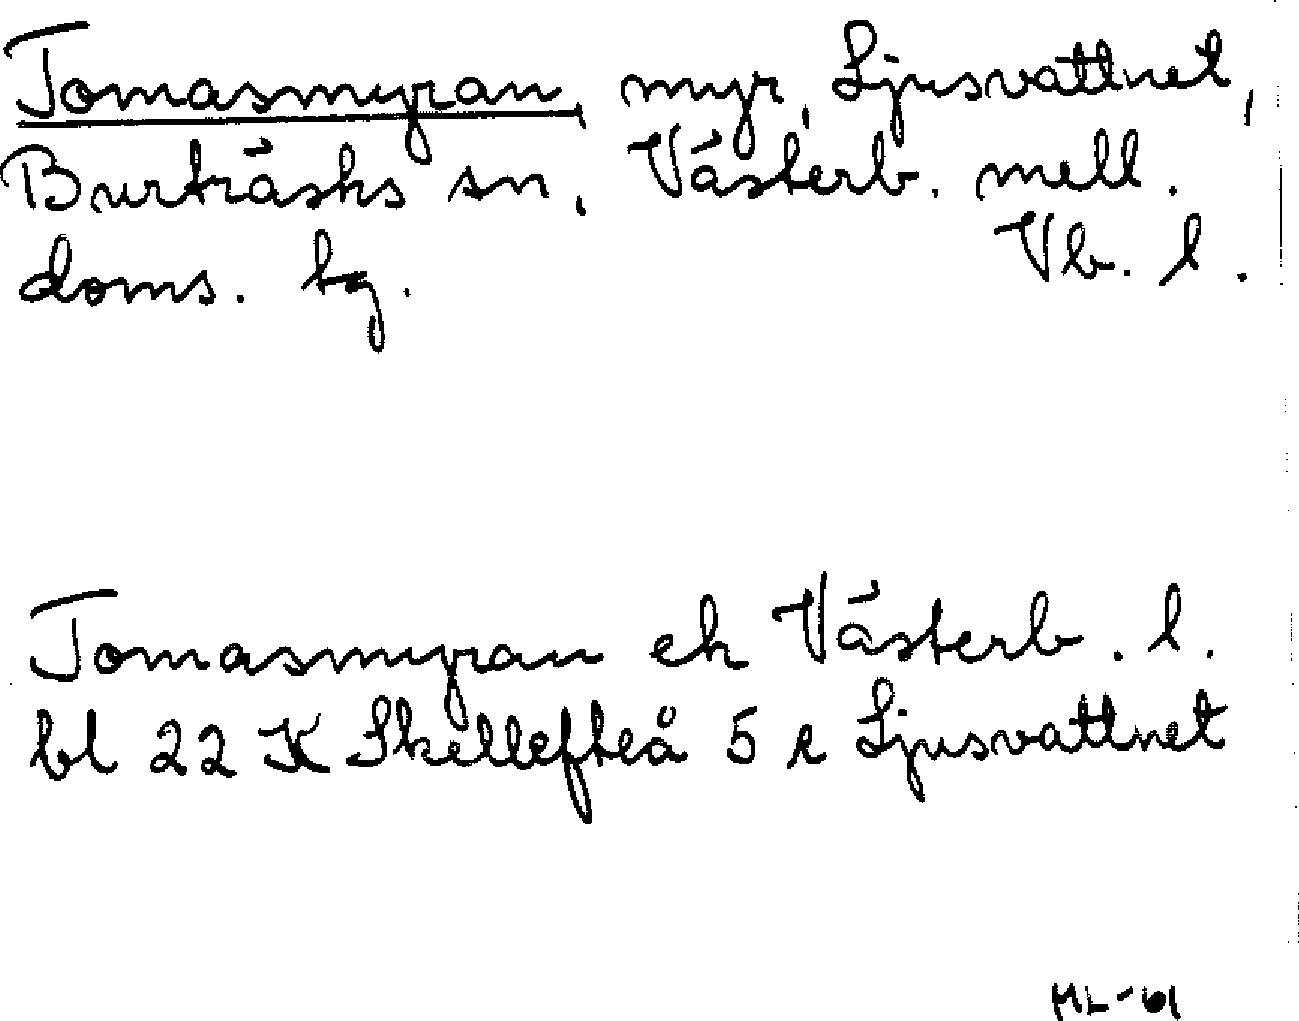 Tomasmyran, myr, Ljusvattnet,
Burträsks sn, Västerb. mell.
doms. tg. Vb. l.
Tomasmyran ek Västerb. l.
bl 22 K Skellefteå 5 e Ljusvattnet
ML-61